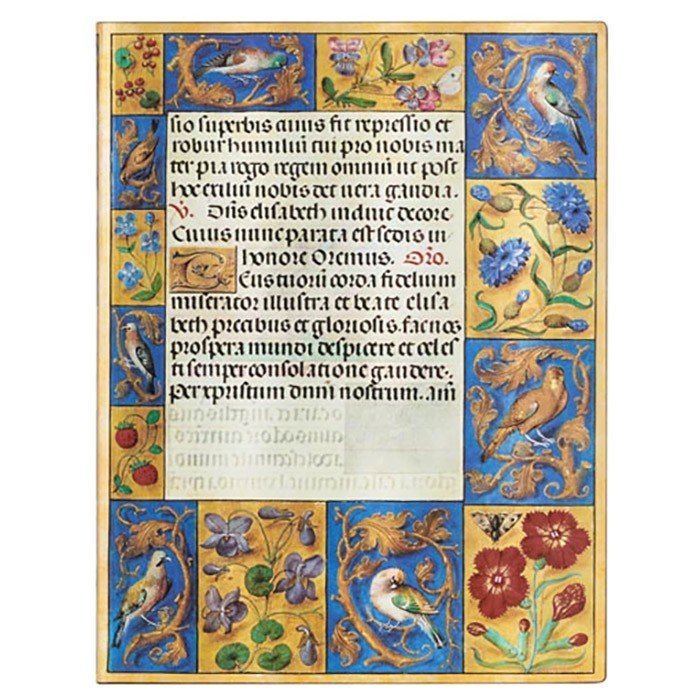 sio superbis cuius fit repressio et
robur humilium cui pro nobis ma
ter pia rogo regem omnium ut post
hoc exilium nobis det vera gaudia.
V. Dns elisabeth induit decore
Cuius nunc parata est sedis in
honore Oremus. Oro.
Deus tuorum corda fidelium
miserator illustra et beate elisa
beth precibus et gloriosis fac nos
prospera mundi despicere et celes
ti semper consolatione gaudere.
per xpristum dnm nostrum. am